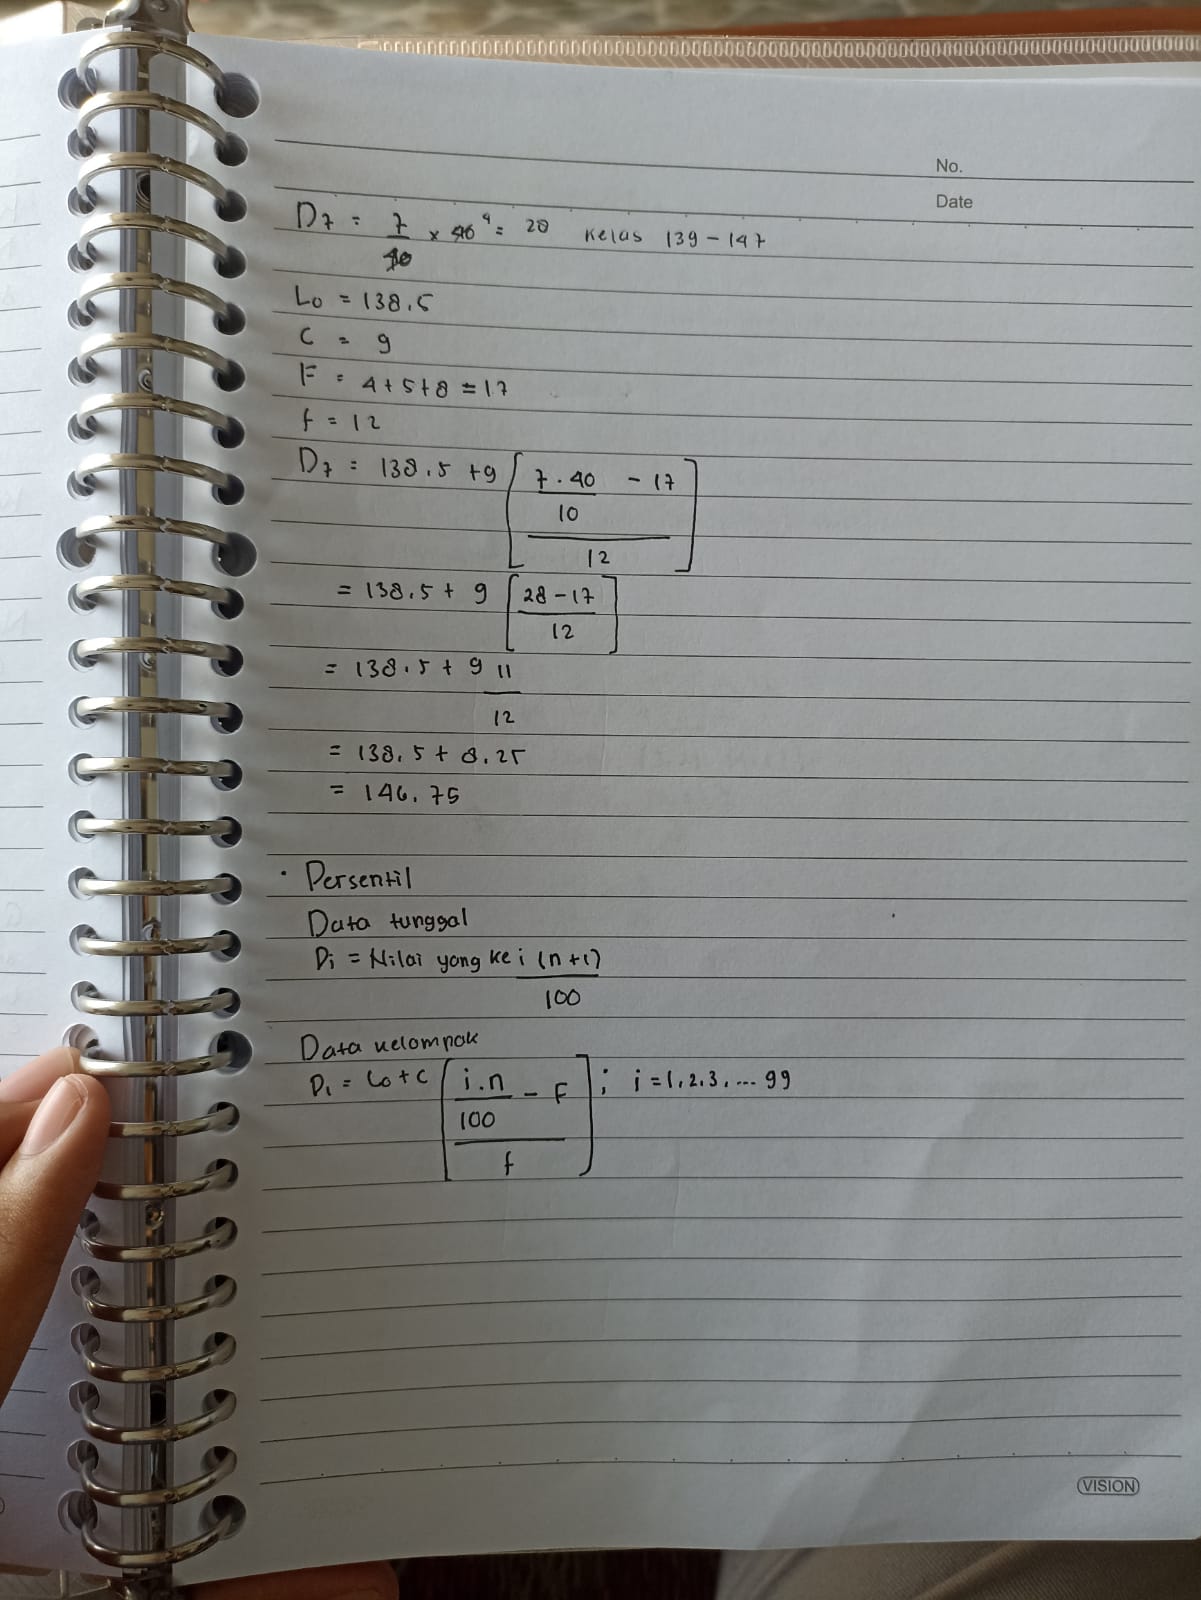 No.
Date
D7 = 7/10 × 40 4 = 28 Kelas 139 - 147
Lo = 138.5
C = 9
F = 4+5+8 = 17
f = 12
D7 = 138.5 + 9 [ (7.40/10 - 17) / 12 ]
= 138.5 + 9 [ (28 - 17) / 12 ]
= 138.5 + 9 11/12
= 138.5 + 8.25
= 146.75
· Persentil
Data tunggal
Pi = Nilai yang ke i (n+1)/100
Data kelompok
Pi = Lo + C [ (i.n/100 - F) / f ] ; i = 1,2,3, ... 99
VISION